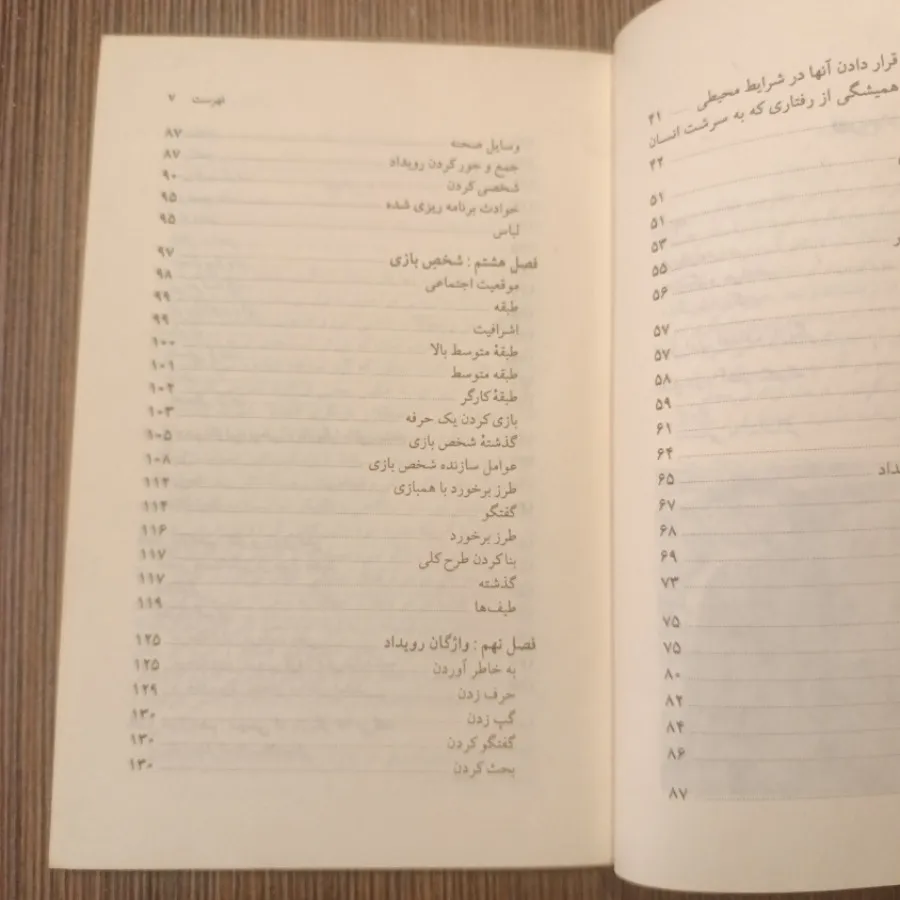 قرار دادن آنها در شرایط محیطی ۴۱
همیشگی از رفتاری که به سرشت انسان
۴۲
۵۱
۵۱
۵۳
۵۵
۵۶
۵۷
۵۷
۵۸
۵۹
۶۱
۶۴
۶۵
۶۷
۶۸
۶۹
۷۳
۷۵
۷۵
۸۰
۸۲
۸۴
۸۶
۸۷
فهرست ۷
وسایل صحنه ۸۷
جمع و جور کردن رویداد ۸۷
شخصی کردن ۹۰
حوادث برنامه ریزی شده ۹۵
لباس ۹۵
فصل هشتم : شخص بازی ۹۷
موقعیت اجتماعی ۹۸
طبقه ۹۹
اشرافیت ۹۹
طبقهٔ متوسط بالا ۱۰۰
طبقه متوسط ۱۰۱
طبقهٔ کارگر ۱۰۲
بازی کردن یک حرفه ۱۰۳
گذشتهٔ شخص بازی ۱۰۵
عوامل سازنده شخص بازی ۱۰۸
طرز برخورد با همبازی ۱۱۲
گفتگو ۱۱۴
طرز برخورد ۱۱۶
بنا کردن طرح کلی ۱۱۷
گذشته ۱۱۷
طیف‌ها ۱۱۹
فصل نهم : واژگان رویداد ۱۲۵
به خاطر آوردن ۱۲۵
حرف زدن ۱۲۹
گپ زدن ۱۳۰
گفتگو کردن ۱۳۰
بحث کردن ۱۳۰